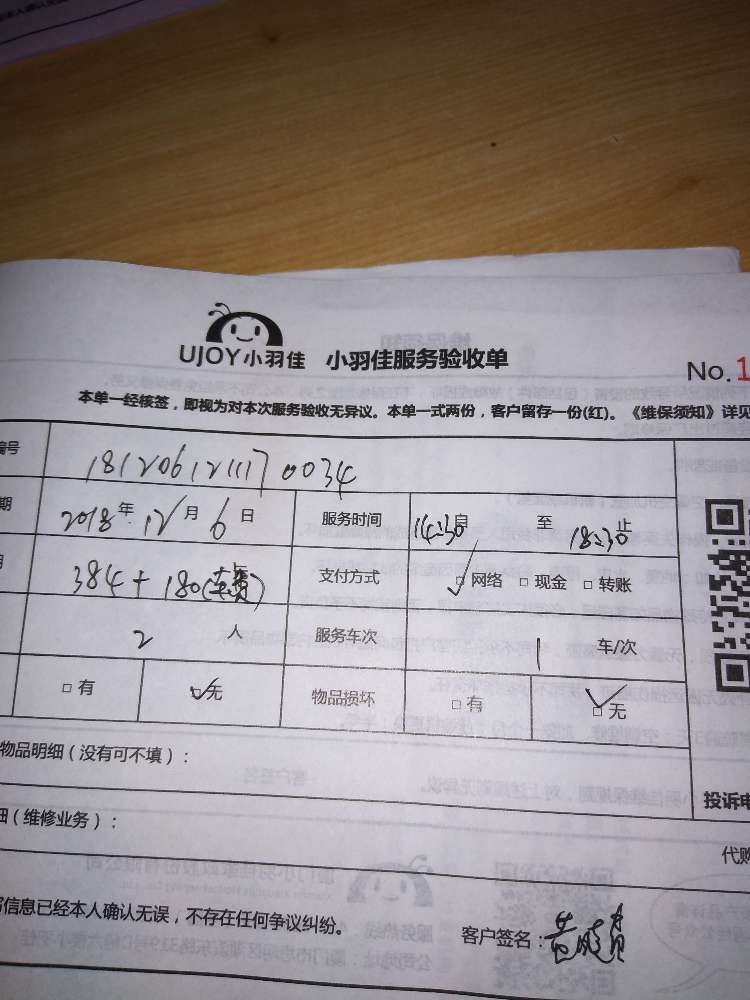 UJOY小羽佳 小羽佳服务验收单
No.1
本单一经核签，即视为对本次服务验收无异议。本单一式两份，客户留存一份(红)。《维保须知》详见
编号 1812061211170034
期 2018年12月6日 服务时间 14:30自 至 18:30止
384+180(车费) 支付方式 □网络 □现金 □转账
2 人 服务车次 1 车/次
□有 □无 物品损坏 □有 □无
物品明细（没有可不填）：
投诉电
细（维修业务）：
代购
信息已经本人确认无误，不存在任何争议纠纷。
客户签名：